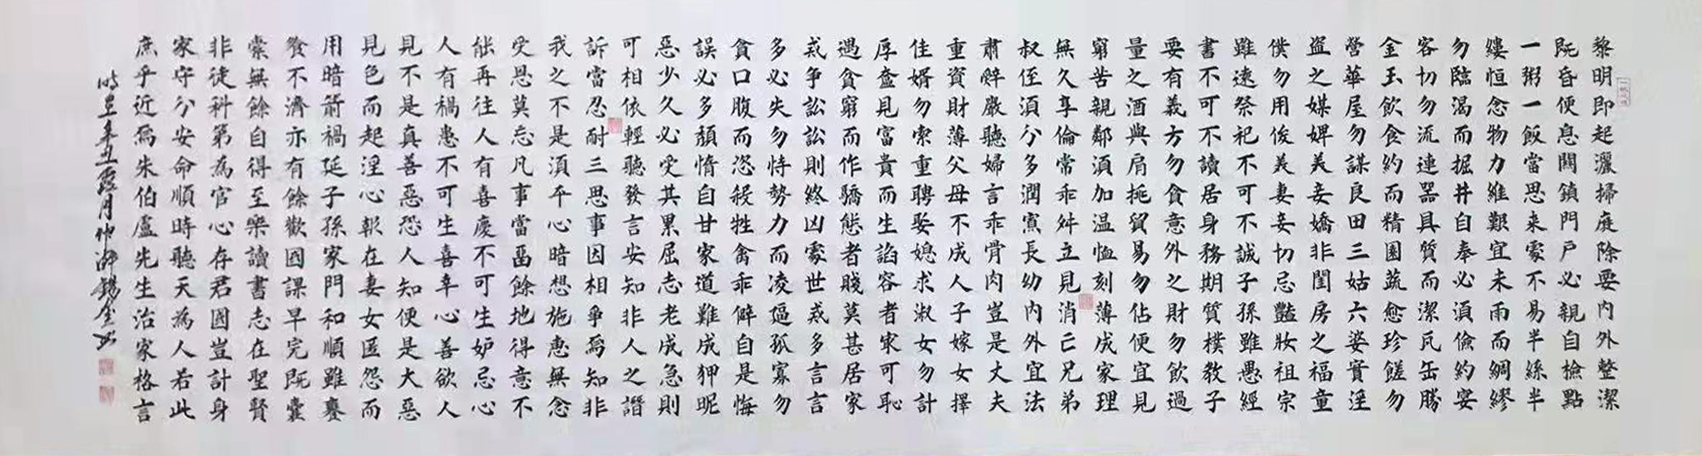 黎明即起灑掃庭除要內外整潔
既昏便息關鎖門戶必親自檢點
一粥一飯當思来處不易半絲半
縷恒念物力維艱宜未雨而綢繆
勿臨渴而掘井自奉必須儉約宴
客切勿流連器具質而潔瓦缶勝
金玉飲食約而精園蔬愈珍饈勿
營華屋勿謀良田三姑六婆實淫
盜之媒婢美妾嬌非閨房之福童
僕勿用俊美妻妾切忌豔妝祖宗
雖遠祭祀不可不誠子孫雖愚經
書不可不讀居身務期質樸教子
要有義方勿貪意外之財勿飲過
量之酒與肩挑貿易勿佔便宜見
窮苦親鄰須加温恤刻薄成家理
無久享倫常乖舛立見消亡兄弟
叔侄須分多潤寡長幼內外宜法
肅辭嚴聽婦言乖骨肉豈是丈夫
重資財薄父母不成人子嫁女擇
佳婿勿索重聘娶媳求淑女勿計
厚奩見富貴而生諂容者最可恥
遇貧窮而作驕態者賤莫甚居家
戒争訟訟則終凶處世戒多言言
多必失勿恃勢力而凌逼孤寡勿
貪口腹而恣殺牲禽乖僻自是悔
誤必多頹惰自甘家道難成狎昵
惡少久必受其累屈志老成急則
可相依輕聽發言安知非人之譖
訴當忍耐三思事因相爭焉知非
我之不是須平心暗想施惠無念
受恩莫忘凡事當留餘地得意不
能再往人有喜慶不可生妒忌心
人有禍患不可生喜幸心善欲人
見不是真善惡恐人知便是大惡
見色而起淫心報在妻女匿怨而
用暗箭禍延子孫家門和順雖饔
飧不濟亦有餘歡國課早完既囊
橐無餘自得至樂讀書志在聖賢
非徒科第為官心存君國豈計身
家守分安命順時聽天為人若此
庶乎近焉朱伯廬先生治家格言
辛丑霞月